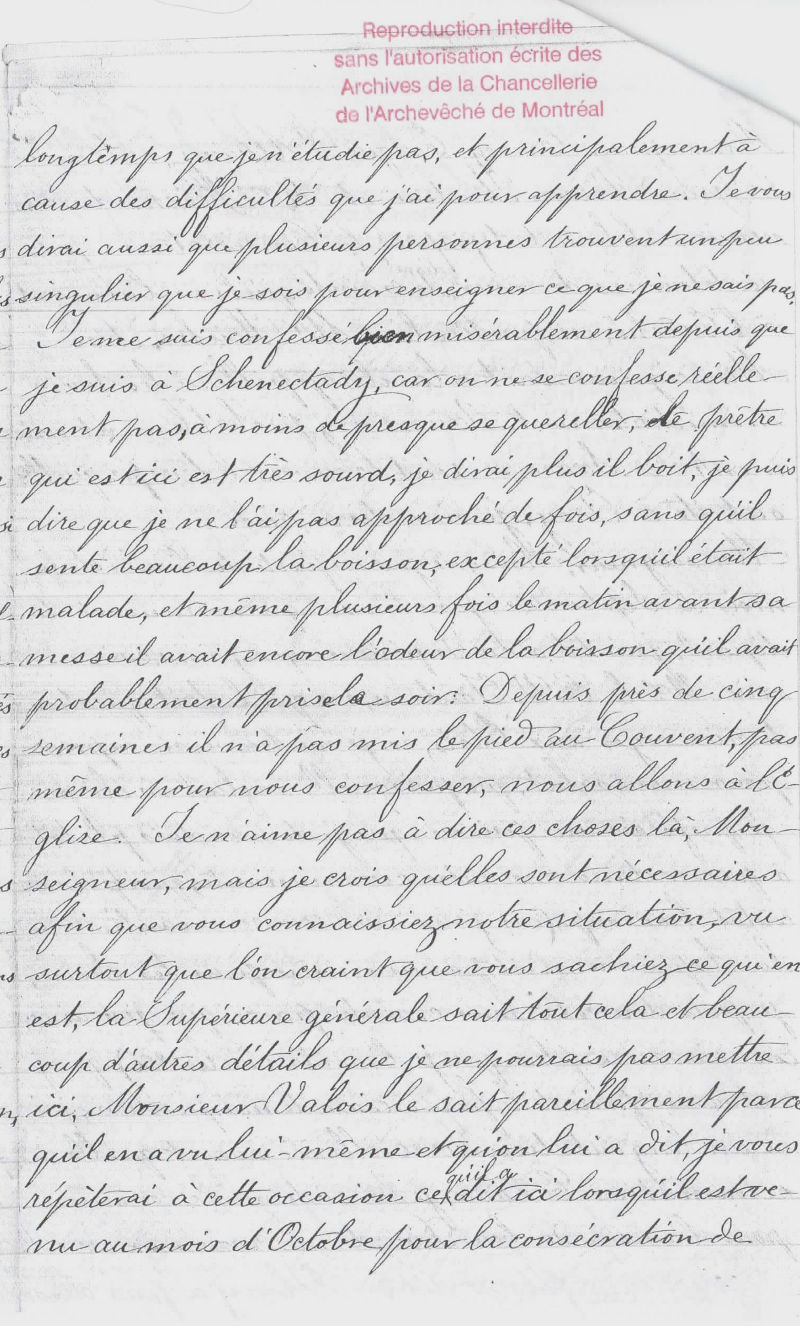 Reproduction interdite
sans l'autorisation écrite des
Archives de la Chancellerie
de l'Archevêché de Montréal
longtemps que je n'étudie pas, et principalement à
cause des difficultés que j'ai pour apprendre. Je vous
dirai aussi que plusieurs personnes trouvent un peu
singulier que je sois pour enseigner ce que je ne sais pas.
Je me suis confessé bien misérablement depuis que
je suis à Schenectady, car on ne se confesse réelle-
ment pas, à moins de presque se quereller, le prêtre
qui est ici est très sourd, je dirai plus il boit, je puis
dire que je ne l'ai pas approché de fois, sans qu'il
sente beaucoup la boisson, excepté lorsqu'il était
malade, et même plusieurs fois le matin avant sa
messe il avait encore l'odeur de la boisson qu'il avait
probablement prise le soir. Depuis près de cinq
semaines il n'a pas mis le pied au Couvent, pas
même pour nous confesser, nous allons à l'É-
glise. Je n'aime pas à dire ces choses là, Mon-
seigneur, mais je crois qu'elles sont nécessaires
afin que vous connaissiez notre situation, vu
surtout que l'on craint que vous sachiez ce qui en
est, la Supérieure générale sait tout cela et beau-
coup d'autres détails que je ne pourrais pas mettre
ici, Monsieur Valois le sait pareillement parce
qu'il en a vu lui-même et qu'on lui a dit, je vous
répèterai à cette occasion ce qu'il a dit ici lorsqu'il est ve-
nu au mois d'Octobre pour la consécration de